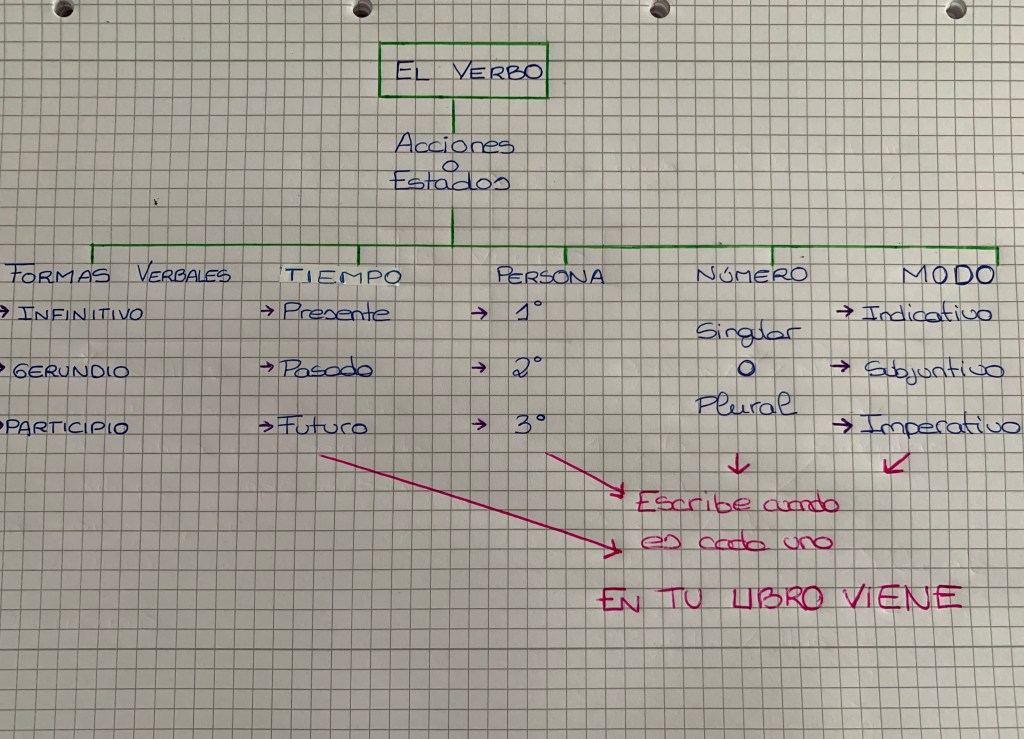 EL VERBO
Acciones
o
Estados
FORMAS VERBALES TIEMPO PERSONA NÚMERO MODO
→ INFINITIVO → Presente → 1º Singular → Indicativo
→ GERUNDIO → Pasado → 2º o → Subjuntivo
→ PARTICIPIO → Futuro → 3º Plural → Imperativo
Escribe cuando
es cada uno
EN TU LIBRO VIENE